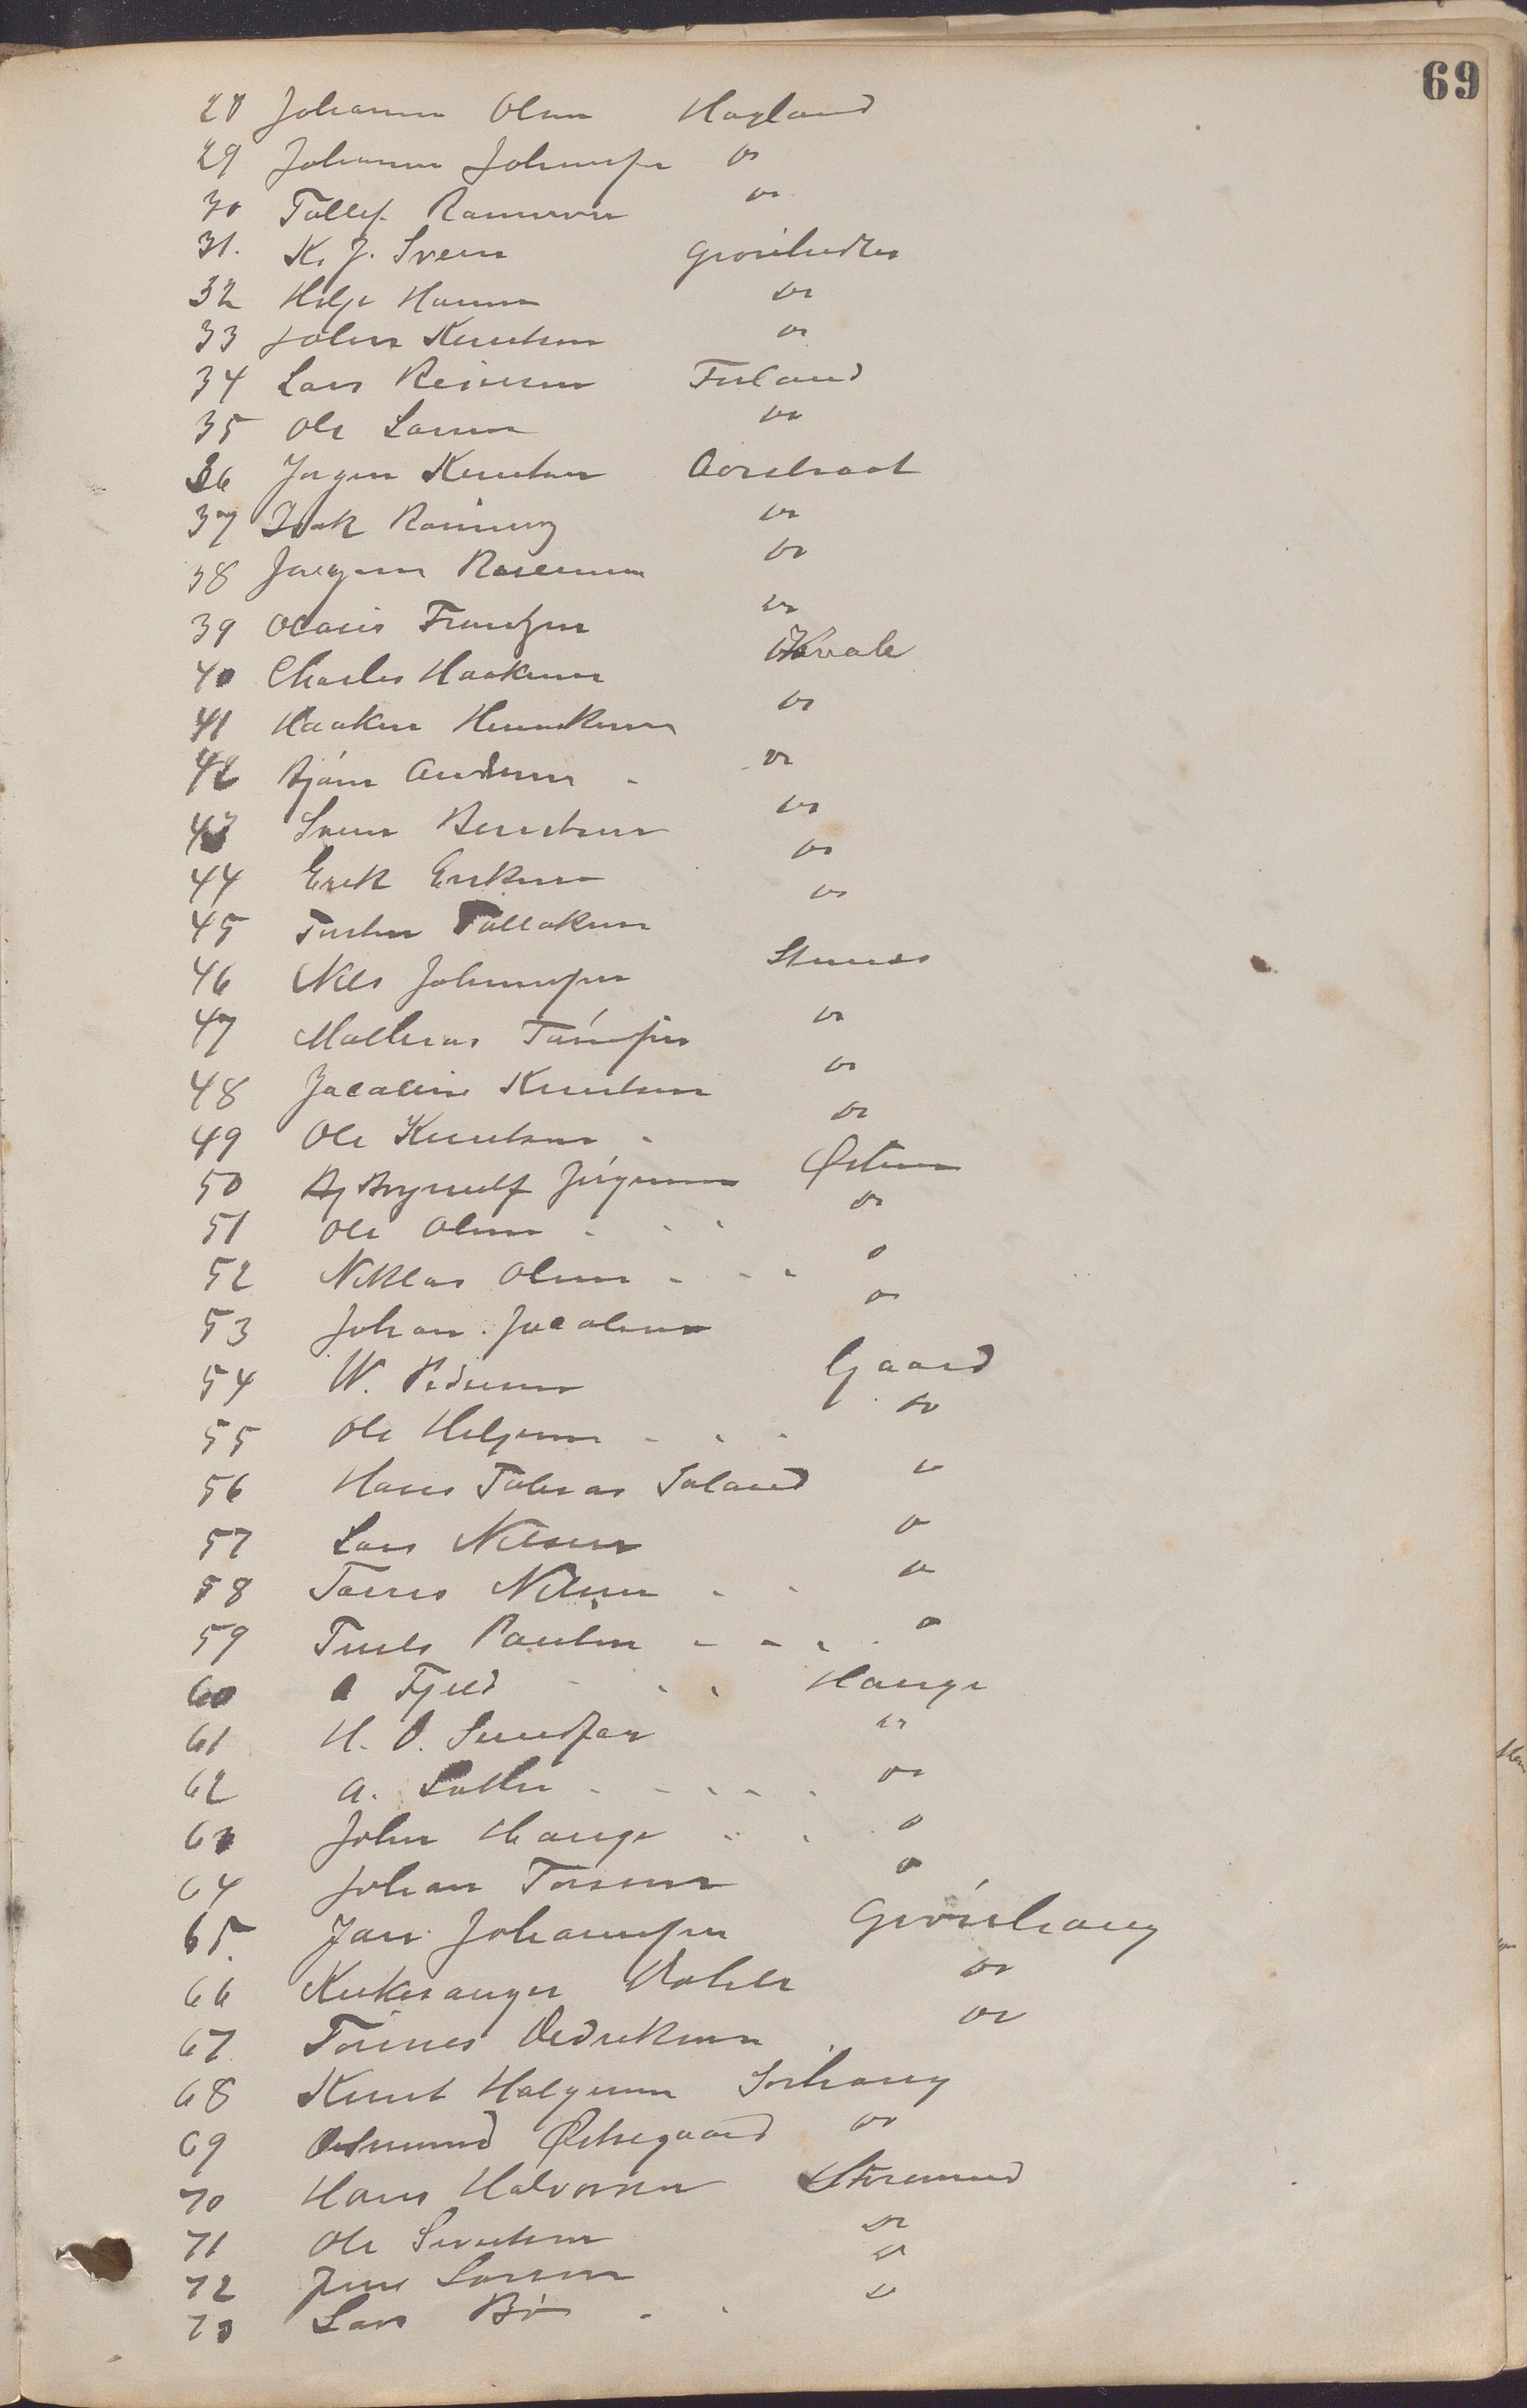 69
28 Johannes Olsen Hagland
29 Johannes Johannesen do
30 Tollef Rasmussen do
31. K. J. Sveen Grønhedler
32 Helge Hansen do
33 John Knutsen do
34 Lars Reiersen Førland
35 Ole Larsen do
36 Jørgen Knutsen Aorstraat
37 Isak Rasmussen do
38 Jørgen Rasmussen do
39 Olaus Frantzen do
40 Charles Haakensen Kvale
41 Haaken Henriksen do
42 Bjørn Andersen - do
43 Sven Berntsen do
44 Erik Eriksen do
45 Torsten Tollaksen do
46 Nils Johannesen Stense
47 Mathias Tønnesen do
48 Jacob Knutsen do
49 Ole Knutsen - do
50 Brynulf Jørgensen Østrem
51 Ole Olsen - - - do
52 Niklas Olsen - - - do
53 Johan Jacobsen do
54 W. Pedersen Gaard
55 Ole Helgesen - - - do
56 Hans Tobias Toland do
57 Lars Nilsen do
58 Torris Nilsen - - do
59 Truls Paulsen - - - do
60 A Fjeld - - - Hauge
61 H. O. Sundfør do
62 A. Sæther - - - - - do
63 John Hauge - - do
64 Johan Torsen do
65. Jan Johannesen Grønhaug
66 Kirkesanger Vatle do
67 Tønnes Vedriksen do
68 Knut Helgesen Sørhaug
69 Osmund Østregaard do
70 Hans Halvorsen Storesund
71 Ole Sivertsen do
72 Jens Larsen do
73 Lars Bø - - do